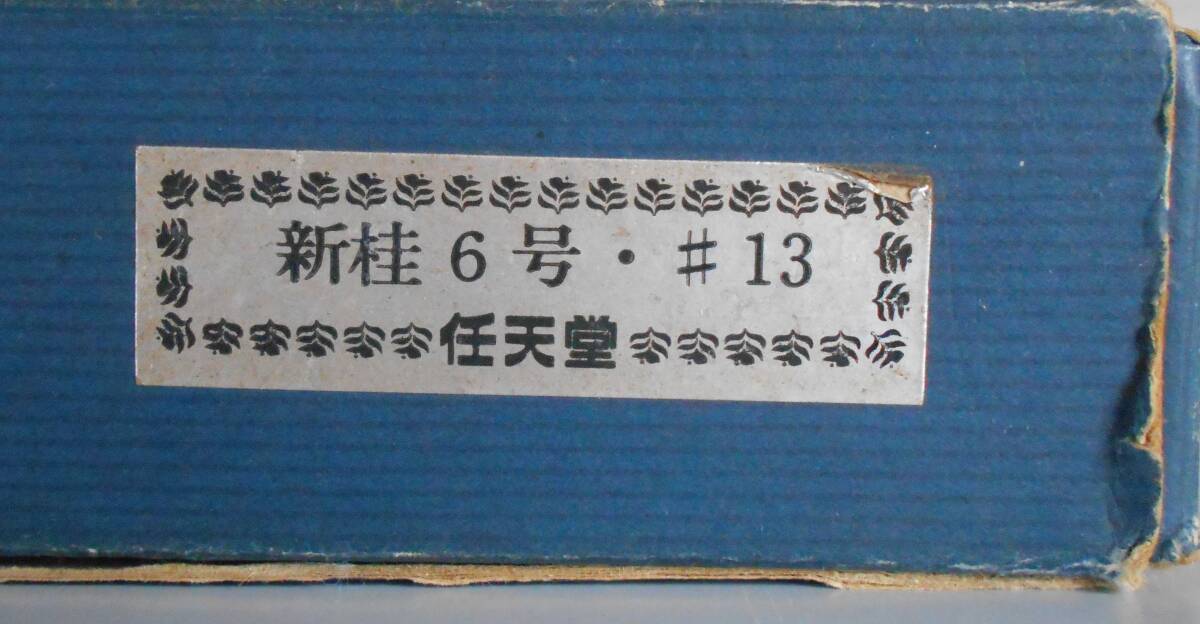 新桂6号・♯13
任天堂